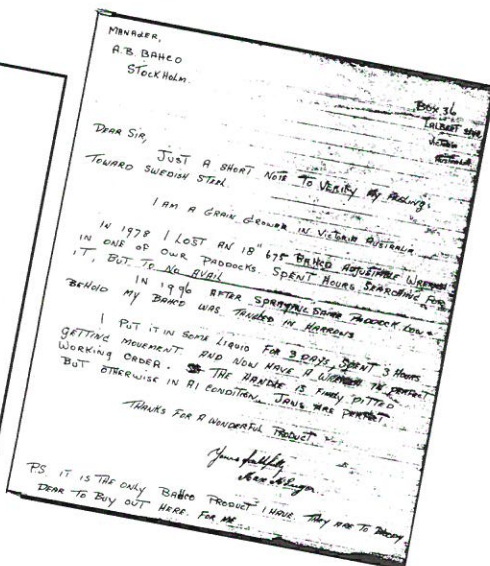 MANAGER,
A.B. BAHCO
STOCKHOLM.
BOX 36
TALBOT
VICTORIA
AUSTRALIA
DEAR SIR,
JUST A SHORT NOTE TO VERIFY MY FEELING
TOWARD SWEDISH STEEL.
I AM A GRAIN GROWER IN VICTORIA AUSTRALIA
IN 1978 I LOST AN 18" 675 BAHCO ADJUSTABLE WRENCH
IN ONE OF OUR PADDOCKS. SPENT HOURS SEARCHING FOR
IT, BUT TO NO AVAIL
IN 1996 AFTER SPRAYING SAME PADDOCK LOW &
BEHOLD MY BAHCO WAS TANGLED IN HARROWS
I PUT IT IN SOME LIQUID FOR 3 DAYS, SPENT 3 HOURS
GETTING MOVEMENT. AND NOW HAVE A WRENCH IN PERFECT
WORKING ORDER. THE HANDLE IS FINELY PITTED
BUT OTHERWISE IN A1 CONDITION. JAWS ARE PERFECT.
THANKS FOR A WONDERFUL PRODUCT
Yours faithfully
PS IT IS THE ONLY BAHCO PRODUCT I HAVE THEY ARE TO
DEAR TO BUY OUT HERE. FOR ME